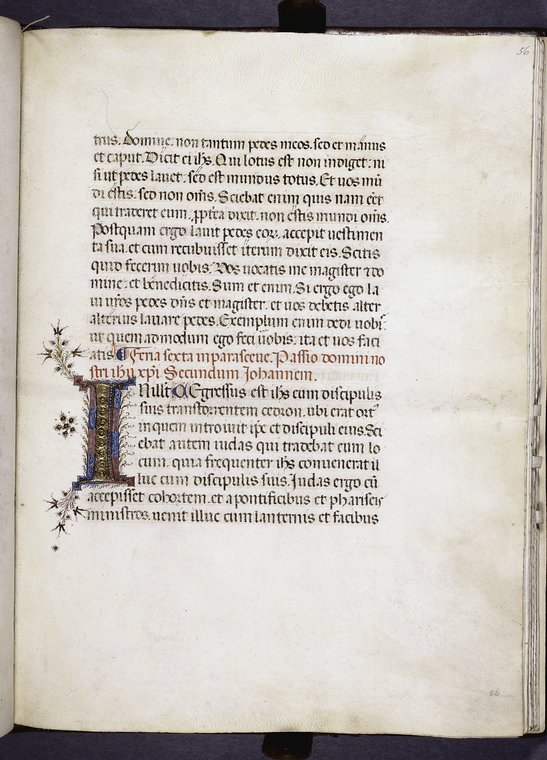 56
trus. Domine. non tantum pedes meos. sed et manus
et caput. Dicit ei ihs. Qui lotus est non indiget: ni
si ut pedes lauet: sed est mundus totus. Et uos mū
di estis. sed non om̄s. Sciebat enim quis nam eēt
qui traderet eum. ꝓpt̄ea dixit. non estis mundi om̄s.
Postquam ergo lauit pedes eoꝝ. accepit uestimen
ta sua. et cum recubuisset iterum dixit eis. Scitis
quid fecerim uobis. Vos uocatis me magister ⁊ do
mine: et benedicitis. Sum et enim. Si ergo ego la
ui ur̄os pedes dn̄s et magister. et uos debetis alter
alterius lauare pedes. Exemplum enim dedi uobis
ut quemadmodum ego feci uobis. ita et uos faci
atis. Feria sexta in parasceue. Passio domini no
stri ihū xpī Secundum Johannem.
IN illo. Egressus est ihs cum discipulis
suis trans torrentem cedron. ubi erat ort̄
in quem introiuit ip̄e et discipuli eius. Sci
ebat autem iudas qui tradebat eum lo
cum. quia frequenter ihs conuenerat il
luc cum discipulis suis. Judas ergo cū
accepisset cohortem. et a pontificibus et phariseis
ministros. uenit illuc cum lanternis et facibus
56